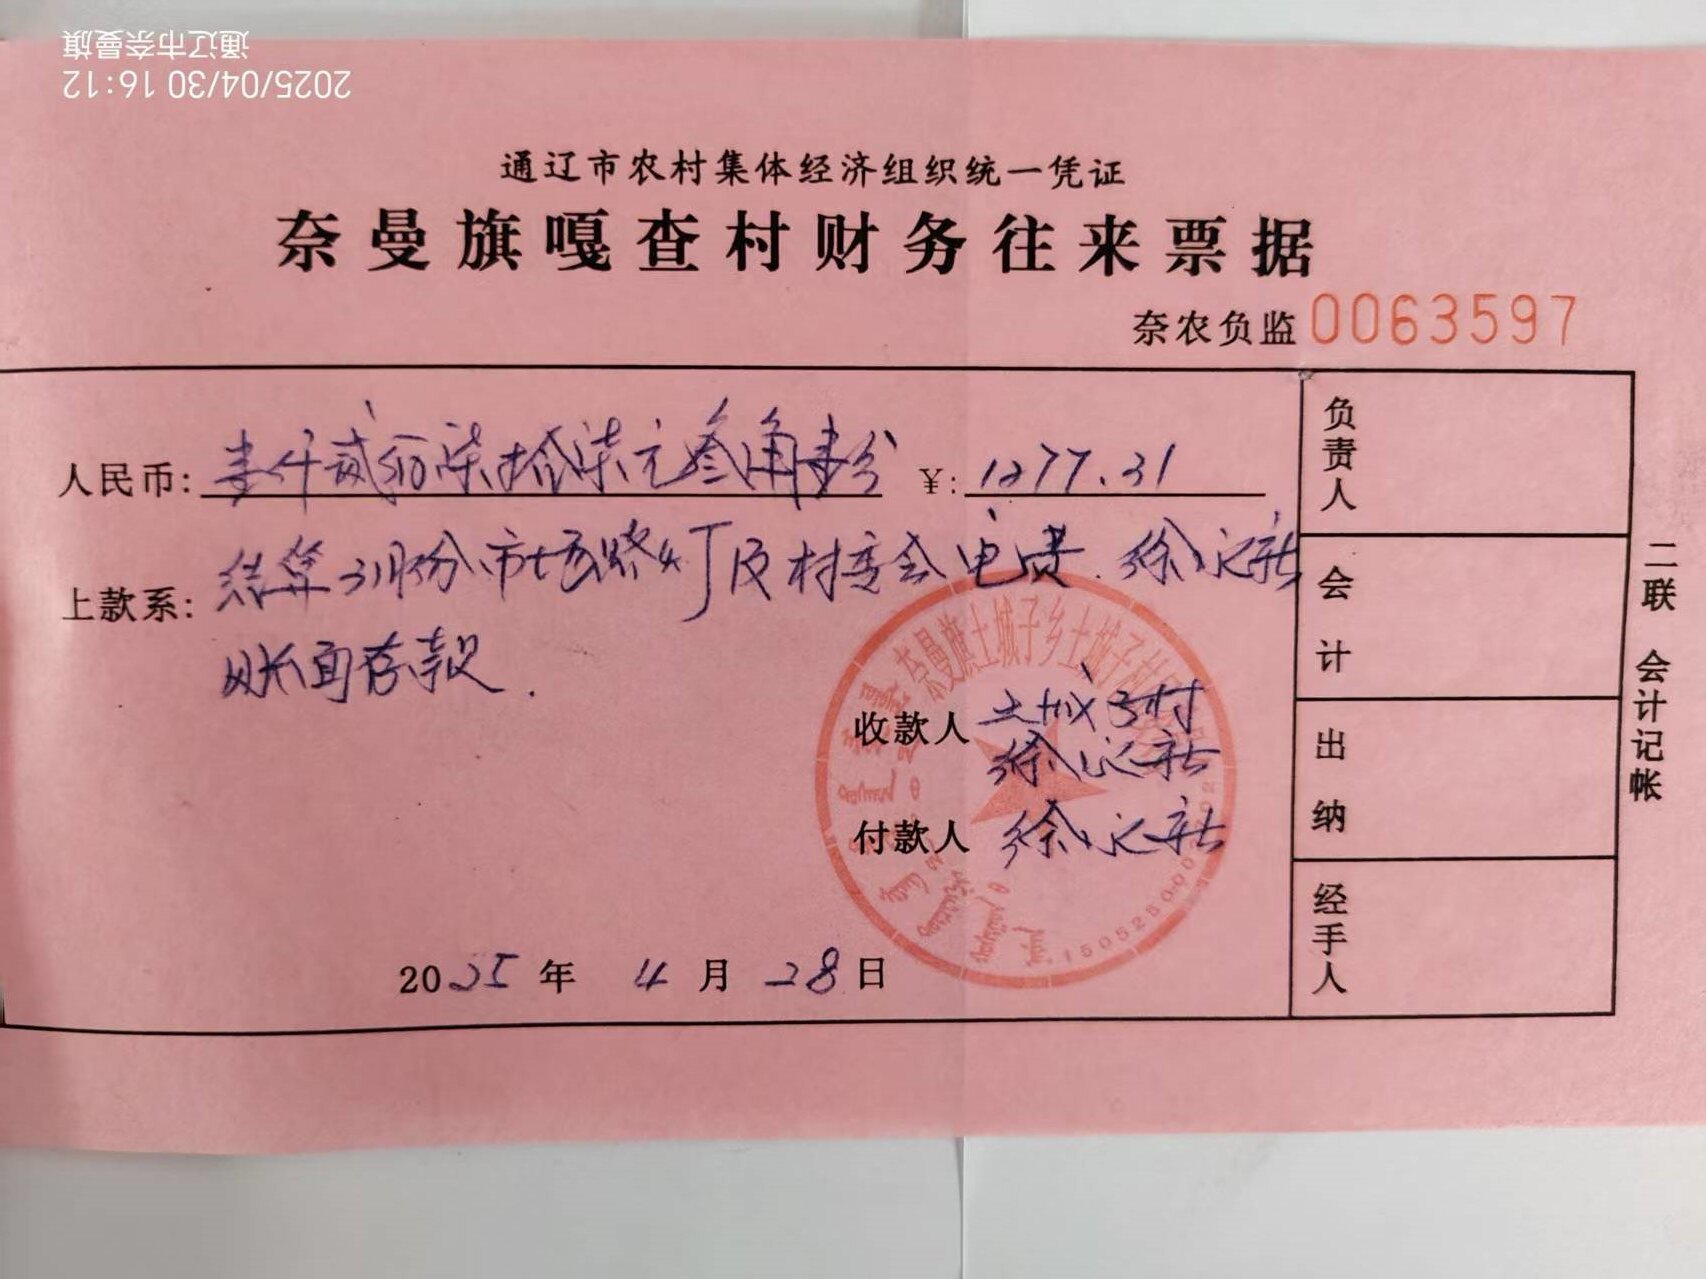 通辽市奈曼旗
2025/04/30 16:12
通辽市农村集体经济组织统一凭证
奈曼旗嘎查村财务往来票据
奈农负监 0063597
人民币: 壹仟贰佰柒拾柒元叁角壹分 ¥: 1277.31
上款系: 结算3月份市场路灯及村委会电费.徐
账面存款.
收款人 土城子村
徐
付款人 徐
2025 年 4 月 28 日
负责人
会计
出纳
经手人
二联 会计记帐
奈曼旗土城子乡土城子村